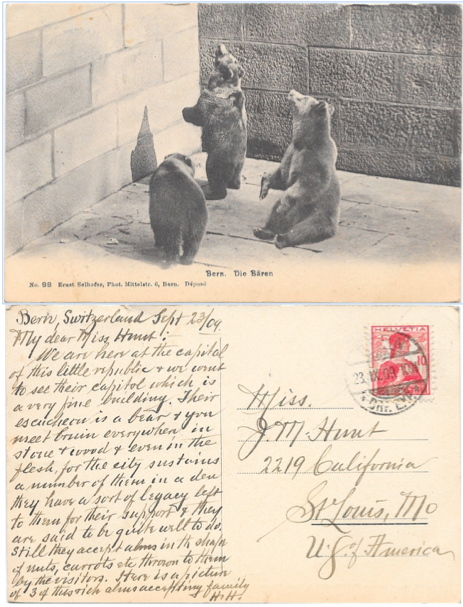 Bern. Die Bären
No. 98 Ernst Selhofer, Phot. Mittelstr. 6, Bern. Déposé
Bern, Switzerland Sept 23/09
My dear Miss, Hunt!
We are here at the capitol
of this little republic & we went
to see their capitol which is
a very fine building. Their
escucheon is a bear & you
meet bruin everywhere in
stone & wood & even in the
flesh, for the city sustains
a number of them in a den
they have a sort of legacy left
to them for their support & they
are said to be quite well to do.
Still they accept alms in the shape
of nuts, carrots etc thrown to them
by the visitors. Here is a picture
of 3 of this rich alms accepting family
H.H.
HELVETIA
10
23. IX. 09
Miss.
J. M. Hunt
2219 California
St Louis, Mo
U. S. of America